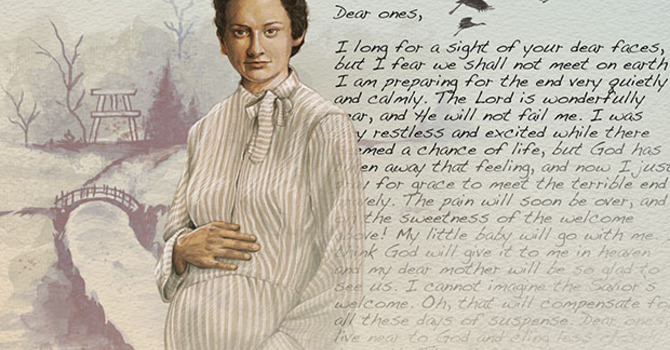 Dear ones,
I long for a sight of your dear faces,
but I fear we shall not meet on earth
I am preparing for the end very quietly
and calmly. The Lord is wonderfully
and He will not fail me. I was
restless and excited while there
a chance of life, but God has
away that feeling, and now I just
for grace to meet the terrible end
The pain will soon be over, and
the sweetness of the welcome
My little baby will go with me.
God will give it to me in heaven
and my dear mother will be so glad to
see us. I cannot imagine the Savior's
welcome. Oh, that will compensate for
all these days of suspense. Dear ones,
live near to God and cling less closely